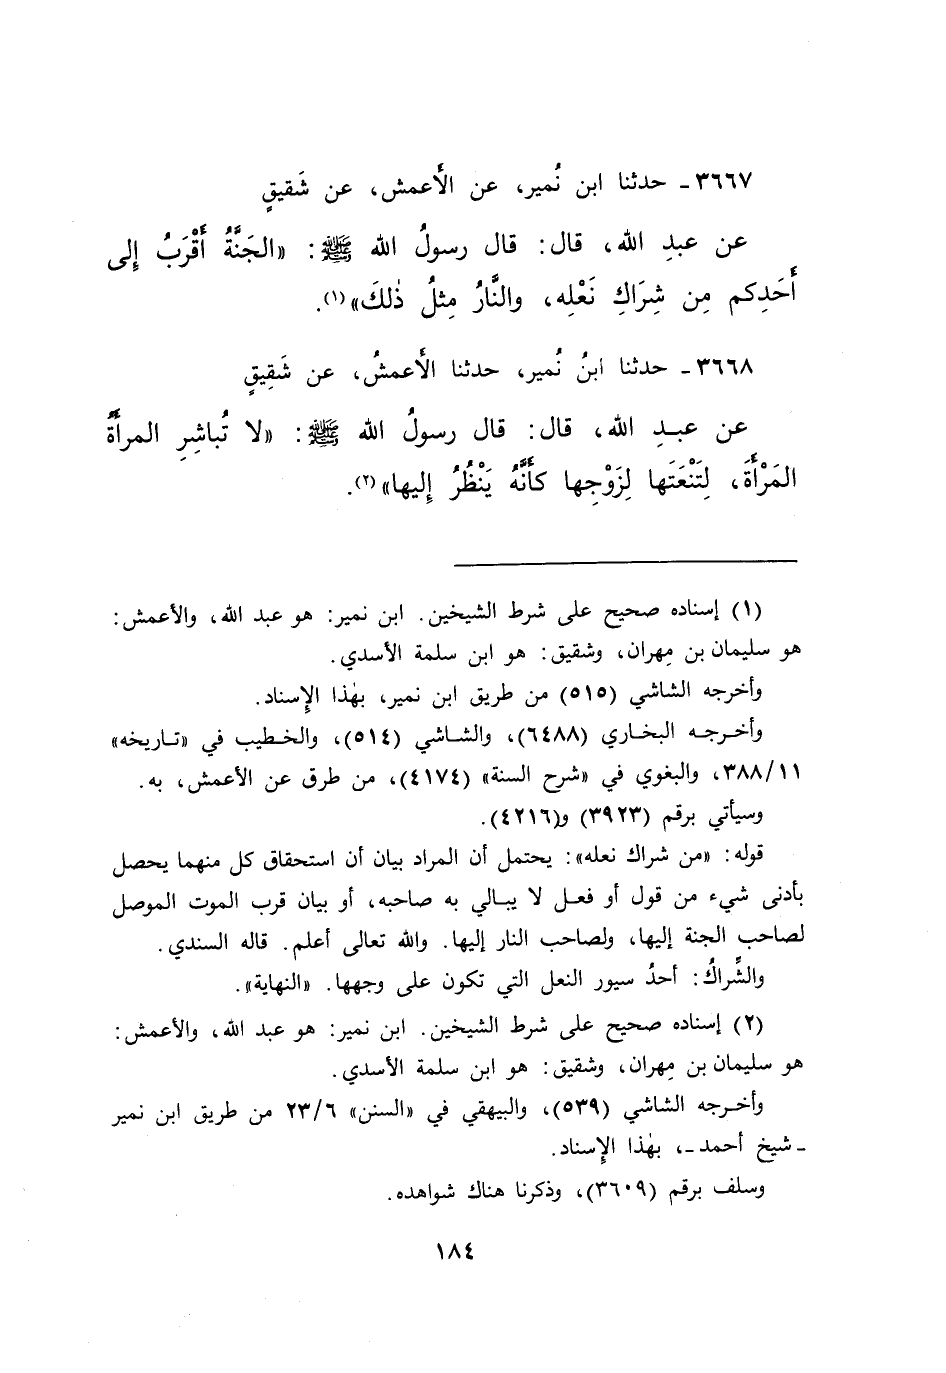 ٣٦٦٧ـ حدثنا ابن نُمير، عن الأَعمش، عن شَقيقٍ
عن عبدِ الله، قال: قال رسولُ الله ﷺ: «الجَنَّةُ أَقْرَبُ إِلى
أَحَدِكم مِن شِرَاكِ نَعْلِه، والنَّارُ مِثلُ ذٰلكَ»(١).
٣٦٦٨ـ حدثنا ابنُ نُمير، حدثنا الأَعمشُ، عن شَقِيقٍ
عن عبـدِ الله، قال: قال رسولُ الله ﷺ: «لا تُباشِرِ المرأَةُ
المَرْأَةَ، لِتَنْعَتَها لِزَوْجِها كأَنَّهُ يَنْظُرُ إِليها»(٢).
(١) إسناده صحيح على شرط الشيخين. ابن نمير: هو عبد الله، والأعمش:
هو سليمان بن مِهران، وشقيق: هو ابن سلمة الأسدي.
وأخرجه الشاشي (٥١٥) من طريق ابن نمير، بهٰذا الإِسناد.
وأخـرجـه البخاري (٦٤٨٨)، والشـاشي (٥١٤)، والخـطيب في «تـاريخه»
٣٨٨/١١، والبغوي في «شرح السنة» (٤١٧٤)، من طرق عن الأعمش، به.
وسيأتي برقم (٣٩٢٣) و(٤٢١٦).
قوله: «من شراك نعله»: يحتمل أن المراد بيان أن استحقاق كل منهما يحصل
بأدنى شيء من قول أو فعـل لا يبـالي به صاحبه، أو بيان قرب الموت الموصل
لصاحب الجنة إليها، ولصاحب النار إليها. والله تعالى أعلم. قاله السندي.
والشِّراكُ: أحدُ سيور النعل التي تكون على وجهها. «النهاية».
(٢) إسناده صحيح على شرط الشيخين. ابن نمير: هو عبد الله، والأعمش:
هو سليمان بن مِهران، وشقيق: هو ابن سلمة الأسدي.
وأخـرجه الشاشي (٥٣٩)، والبيهقي في «السنن» ٢٣/٦ من طريق ابن نمير
ـ شيخ أحمد ـ، بهٰذا الإِسناد.
وسلف برقم (٣٦٠٩)، وذكرنا هناك شواهده.
١٨٤